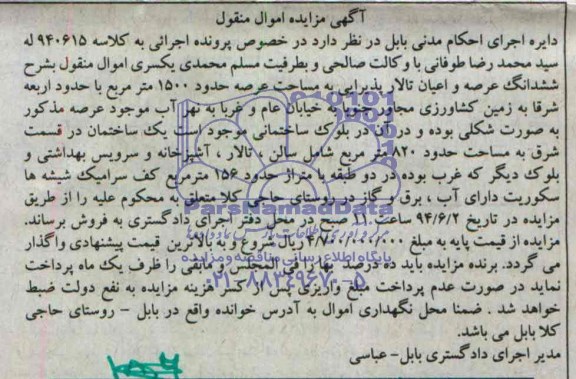 آگهی مزایده اموال منقول
دایره اجرای احکام مدنی بابل در نظر دارد در خصوص پرونده اجرائی به کلاسه ۹۴۰۶۱۵ له
سید محمد رضا طوفانی با وکالت صالحی و بطرفیت مسلم محمدی یکسری اموال منقول بشرح
ششدانگ عرصه و اعیان تالار پذیرایی به مساحت عرصه حدود ۱۵۰۰ متر مربع با حدود اربعه
شرقا به زمین کشاورزی مجاور جنوبا به خیابان عام و غربا به نهر آب موجود عرصه مذکور
به صورت شکلی بوده و در آن در بلوک ساختمانی موجود است یک ساختمان در قسمت
شرق به مساحت حدود ۸۲۰ متر مربع شامل سالن ، تالار ، آشپزخانه و سرویس بهداشتی و
بلوک دیگر که غرب بوده در دو طبقه با متراژ حدود ۱۵۶ مترمربع کف سرامیک شیشه ها
سکوریت دارای آب ، برق و گاز در روستای حاجی کلا متعلق به محکوم علیه را از طریق
مزایده در تاریخ ۹۴/۶/۲ ساعت ۱۱ صبح در محل دفتر اجرای دادگستری به فروش برساند.
مزایده از قیمت پایه به مبلغ ریال شروع و به بالاترین قیمت پیشنهادی واگذار
می گردد. برنده مزایده باید ده درصد بهار را فی المجلس و مابقی را ظرف یک ماه پرداخت
نماید در صورت عدم پرداخت مبلغ واریزی پس از کسر هزینه مزایده به نفع دولت ضبط
خواهد شد . ضمنا محل نگهداری اموال به آدرس خوانده واقع در بابل - روستای حاجی
کلا بابل می باشد.
مدیر اجرای دادگستری بابل- عباسی
ParsNamadData
پایگاه اطلاع رسانی مناقصه و مزایده
۰۲۱-۸۸۳۴۹۶۷۰-۵